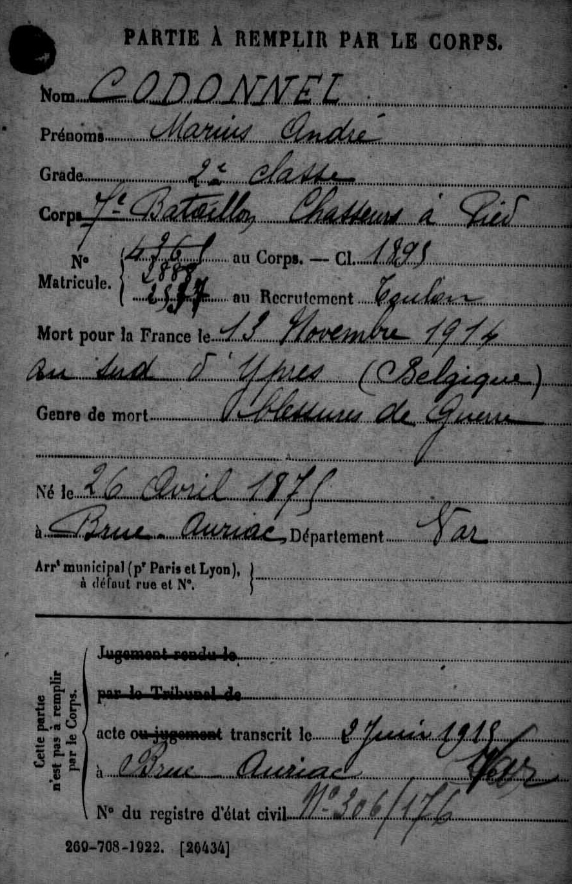 PARTIE À REMPLIR PAR LE CORPS.
Nom CODONNEL
Prénoms Marius André
Grade 2e classe
Corps 7e Bataillon Chasseurs à Pied
N° Matricule. { au Corps. — Cl. 1895
au Recrutement Toulon
Mort pour la France le 13 Novembre 1914
au sud d'Ypres (Belgique)
Genre de mort blessures de Guerre
Né le 26 Avril 1875
à Brue-Auriac Département Var
Arrt municipal (pr Paris et Lyon), }
à défaut rue et N°.
Cette partie n'est pas à remplir par le Corps.
Jugement rendu le
par le Tribunal de
acte ou jugement transcrit le 2 Juin 1915
à Brue Auriac Var
N° du registre d'état civil N° 306/176
269-708-1922. [26434]